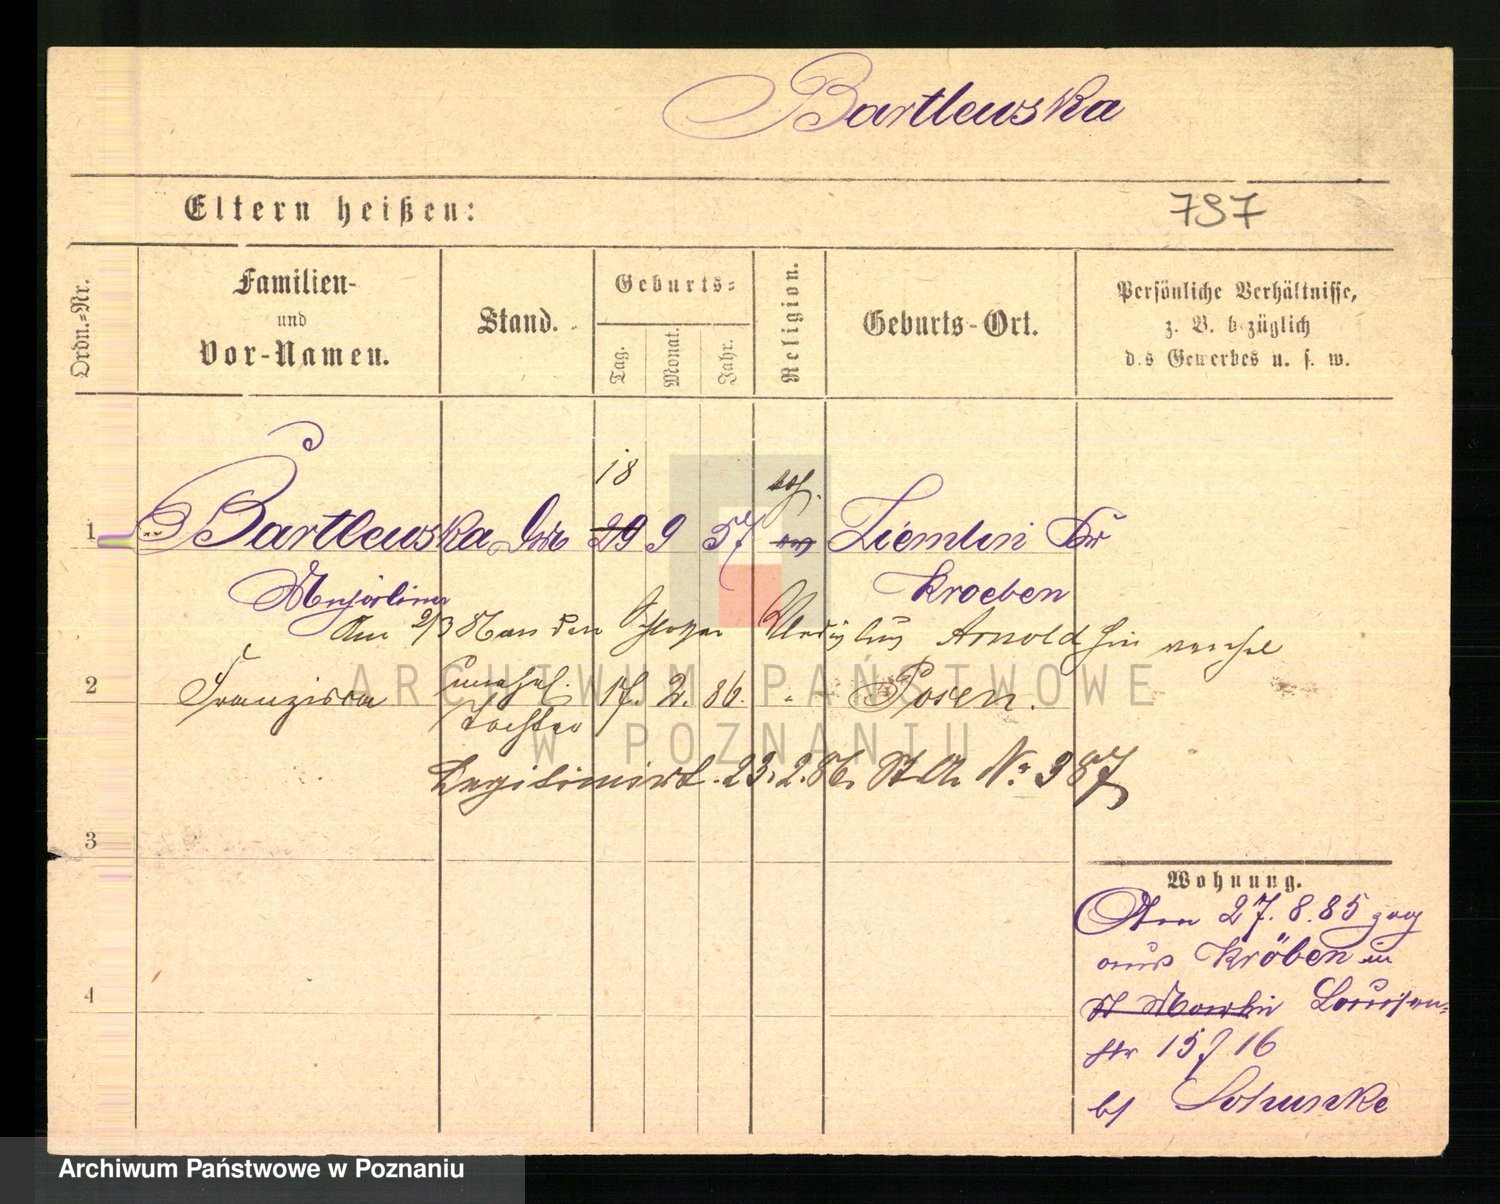 Bartlewska
Eltern heißen:
797
Ordn.-Nr.
Familien-
und
Vor-Namen.
Stand.
Geburts-
Tag.
Monat.
Jahr.
Religion.
Geburts-Ort.
Persönliche Verhältnisse,
z. B. bezüglich
des Gewerbes u. s. w.
18
1 Bartlewska 29 9 57 Ziemlin Kr
Kroeben
Am 2/3 86 an den Arnold
2 Franziska unehel. 17. 2. 86. Posen.
Tochter
Legitimirt. 23.2.86. St A. No 387
3
Wohnung.
Am 27. 8. 85 zog
aus Kröben in
4
St Martin Louisen-
str 15/16
b/
ARCHIWUM PAŃSTWOWE
W POZNANIU
Archiwum Państwowe w Poznaniu